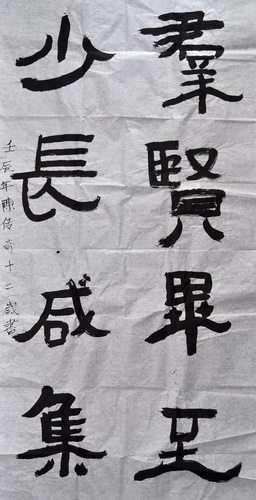 羣賢畢至
少長咸集
壬辰年陳奇十二歲書